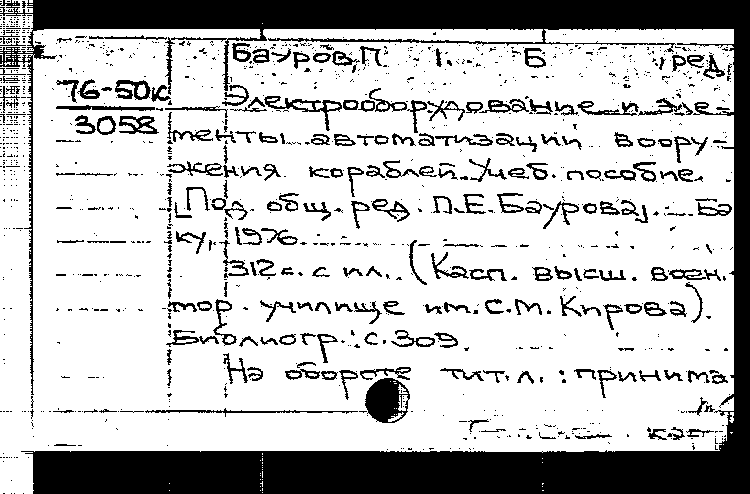 Бауров, П I. Б , ред
76-50к
3058
Электрооборудование и эле-
менты автоматизации воору-
жения кораблей. Учеб. пособие.
[Под. общ. ред. П.Е. Баурова]. Ба
ку, 1976.
312 с. с ил. (Касп. высш. воен.
мор. училище им. С.М. Кирова).
Библиогр.: с. 309.
На обороте тит. л. : принима-
кар